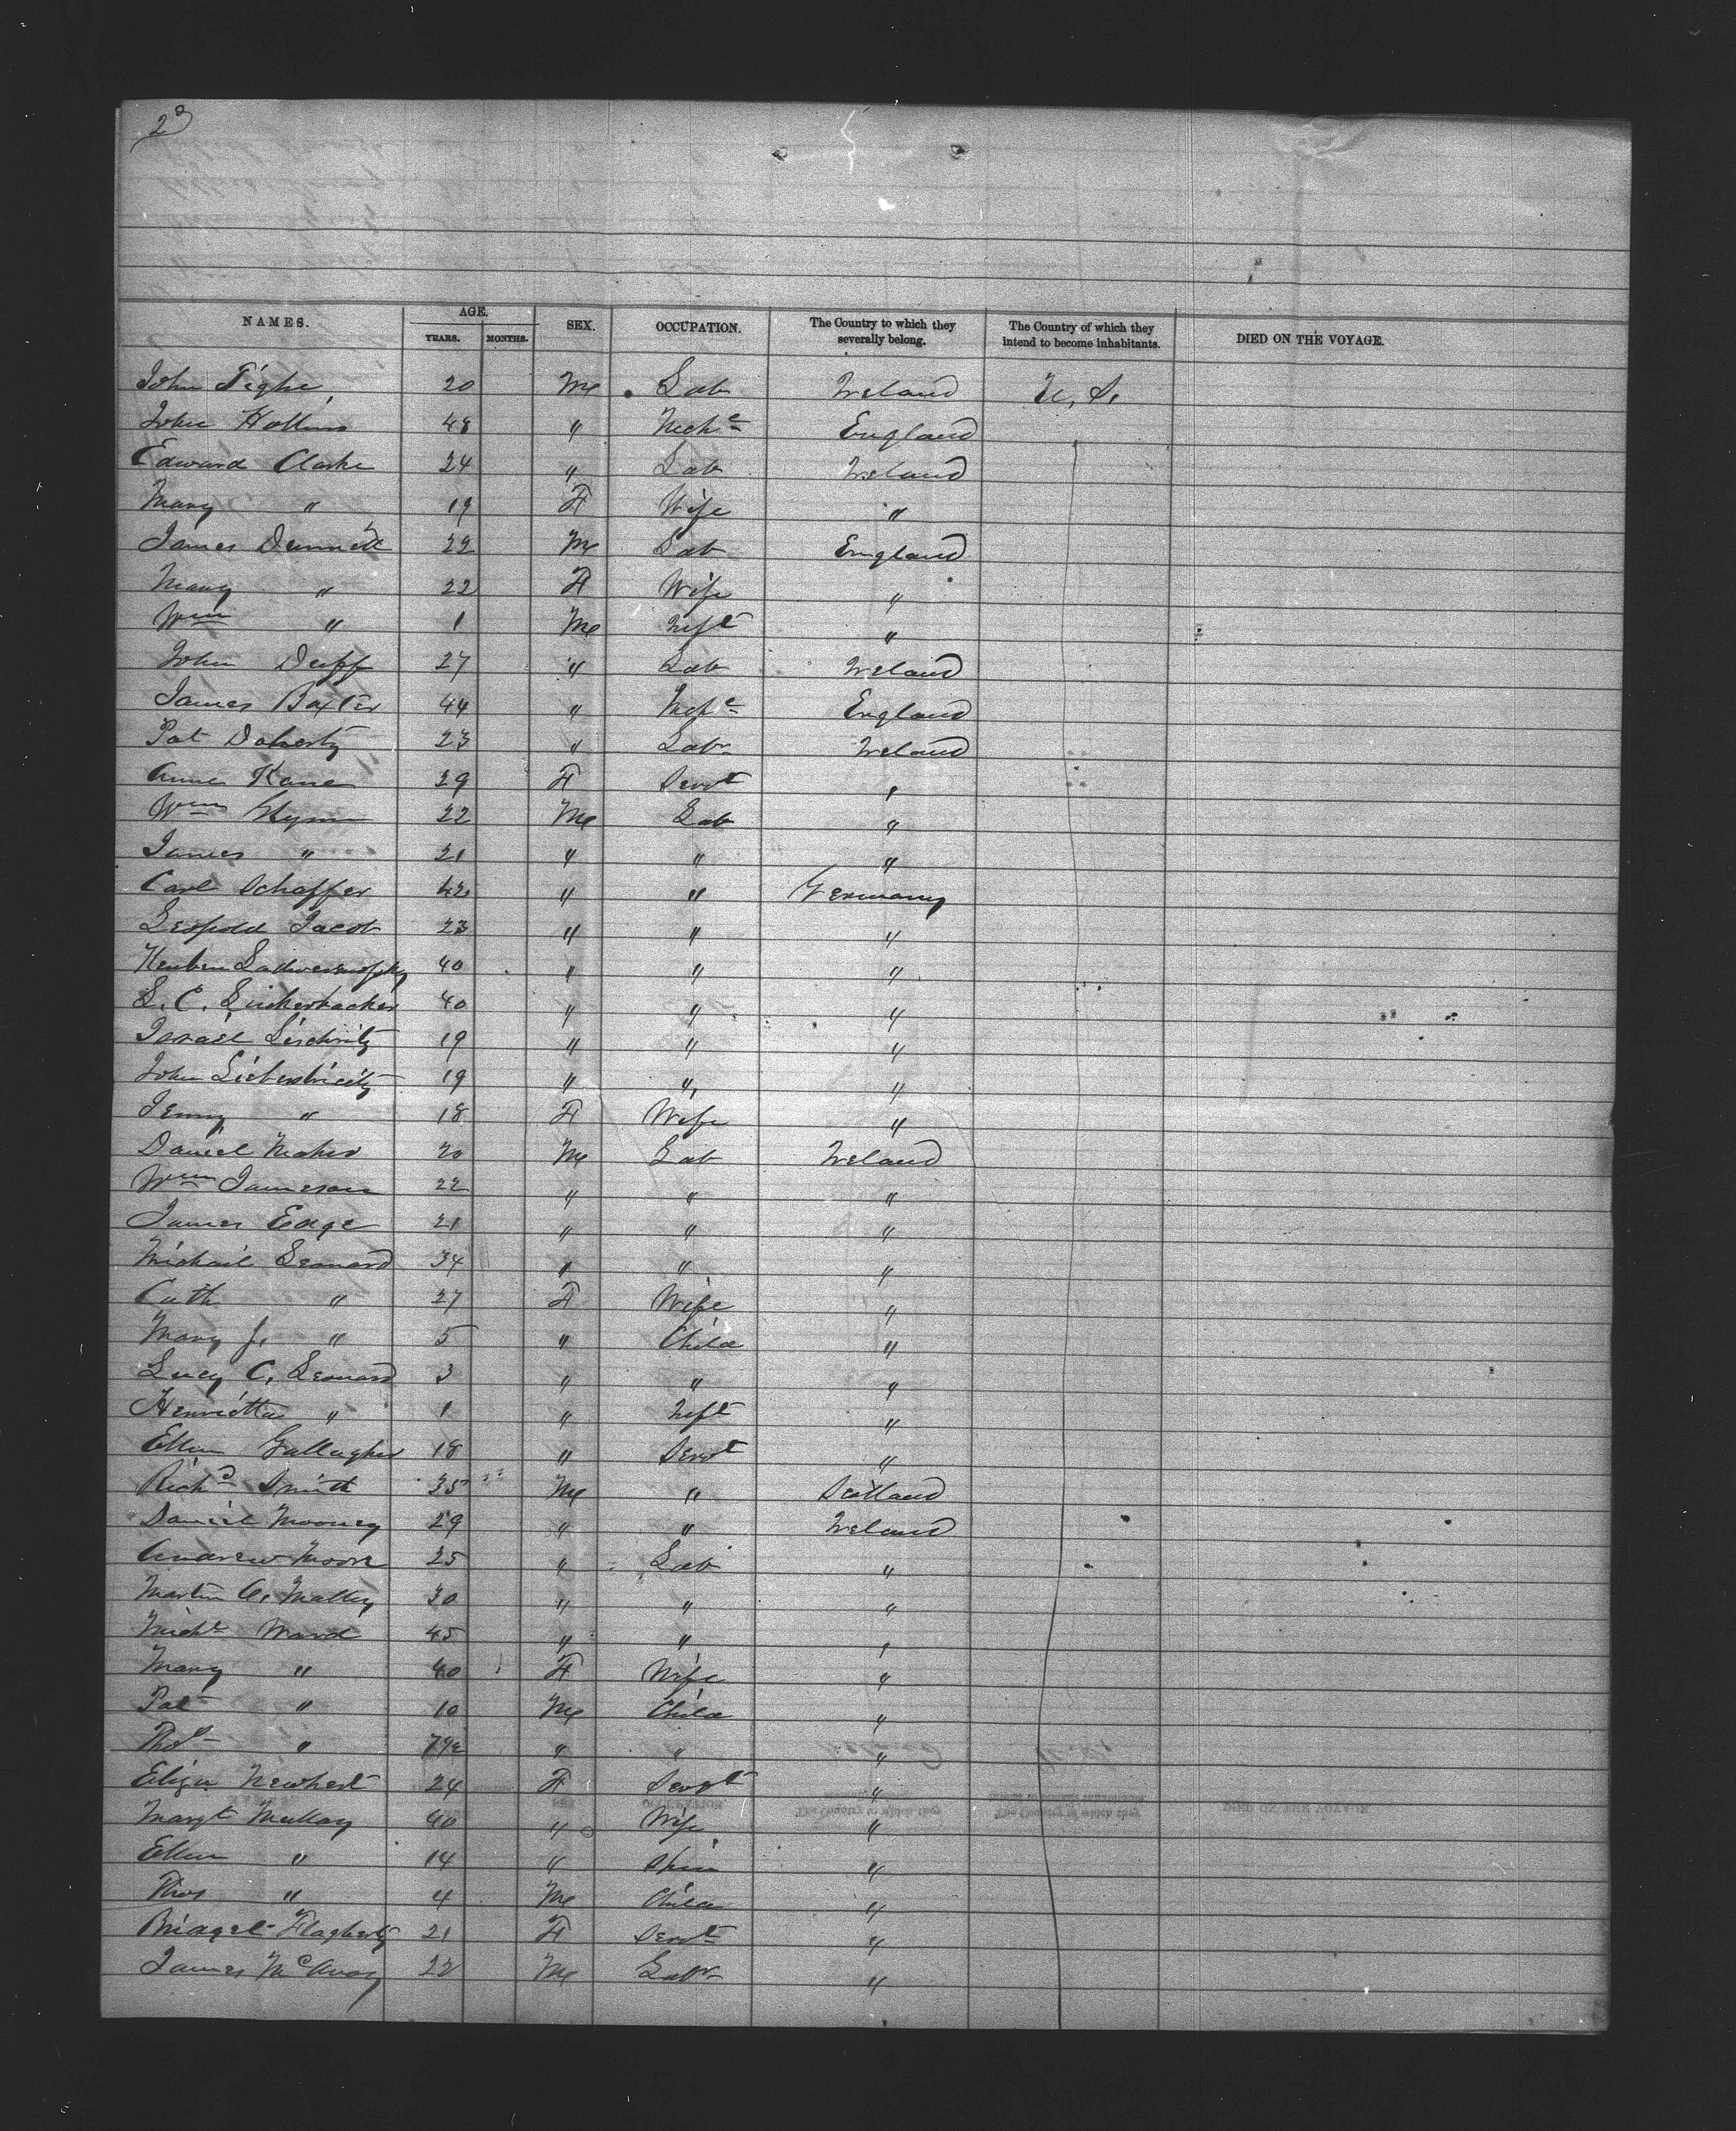 2
NAMES. AGE. YEARS. MONTHS. SEX. OCCUPATION. The Country to which they severally belong. The Country of which they intend to become inhabitants. DIED ON THE VOYAGE.
John Tighe 20 Me Lab Ireland U, S,
John Hollins 48 " Mech<sup>c</sup> England
Edward Clarke 24 " Lab Ireland
Mary " 19 F Wife "
James 22 Me Lab England
Mary " 22 F Wife "
Wm " 1 Me Inft "
John Duff 27 " Lab Ireland
James Baxter 44 " Mech<sup>c</sup> England
Pat Doherty 23 " Labr Ireland
Anne Kane 29 F Servt "
Wm 22 Me Lab "
James " 21 " " "
Carl Schaffer 42 " " Germany
Leopold Jacob 23 " " "
Reuben 40 " " "
L. C. 40 " " "
Israel 19 " " "
John 19 " " "
Jenny " 18 F Wife "
Daniel Maher 20 Me Lab Ireland
Wm Jameson 22 " " "
James Edge 21 " " "
Michael Leonard 34 " " "
Cath " 27 F Wife "
Mary J. " 5 " Child "
Lucy C. Leonard 3 " " "
Henrietta " 1 " Inft "
Ellen Gallagher 18 " Servt "
Richd Smith 35 Me " Scotland
Daniel Mooney 29 " " Ireland
Andrew Moore 25 " Lab "
Martin O. Malley 30 " " "
Michl Ward 45 " " "
Mary " 40 F Wife "
Pat " 10 Me Child "
Thos " " " "
Eliza 24 F Servt "
Margt 40 " Wife "
Ellen " 14 " Spin "
Thos " 4 Me Child "
Bridget Flagherty 21 F Servt "
James McAvoy 22 Me Labr "